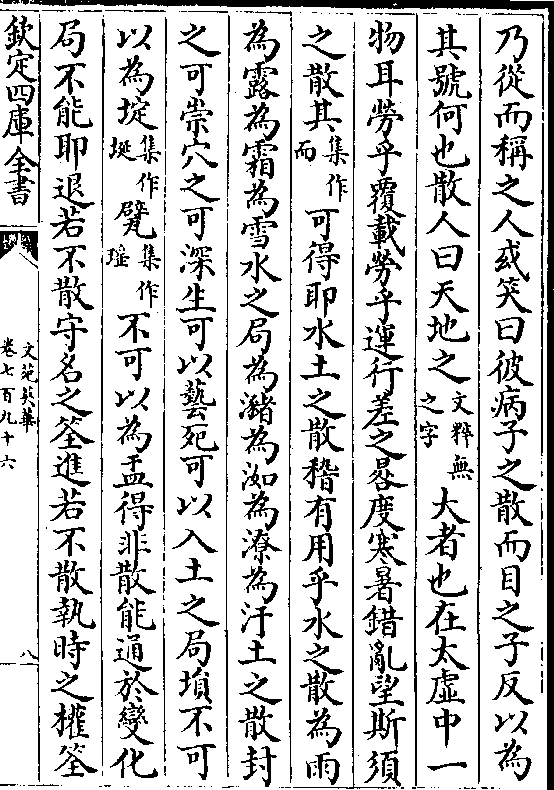 乃從而稱之人或笑曰彼病子之散而目之子反以為
其號何也散人曰天地之文粹無之字大者也在太虛中一
物耳勞乎覆載勞乎運行差之晷度寒暑錯亂望斯須
之散其集作而可得耶水土之散稽有用乎水之散為雨
為露為霜為雪水之局為瀦為洳為潦為汙土之散封
之可崇穴之可深生可以藝死可以入土之局塤不可
以為埞集作埏甓集作瑶不可以為盂得非散能通於變化
局不能耶退若不散守名之筌進若不散執時之權筌
欽定四庫全書
文苑英華
卷七百九十六
八